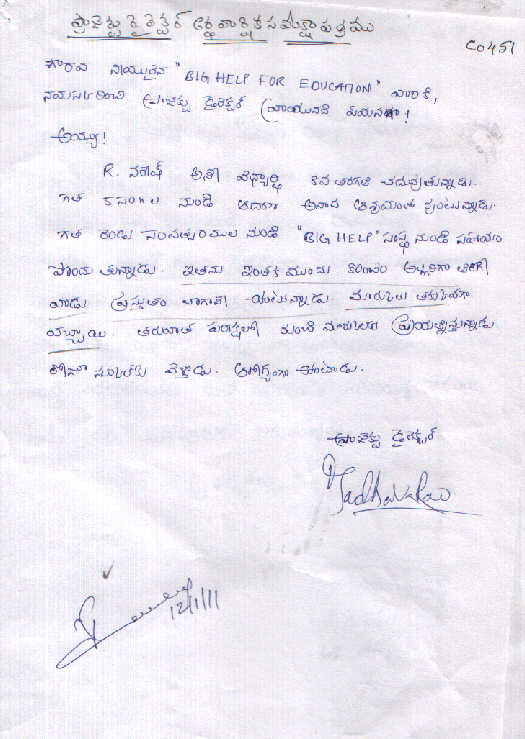 ప్రాజెక్టు డైరెక్టర్ అర్థవార్షిక సమీక్షా పత్రము
CO451
గౌరవ నీయులైన "BIG HELP FOR EDUCATION" వారికి,
ప్రాజెక్టు డైరెక్టర్ వ్రాయునది ఏమనగా!
అయ్యా!
R. నరేష్ అనే విద్యార్థి 8వ తరగతి చదువుతున్నాడు.
గత 5సం॥ల నుండి ఆదరణ అనాధ ఆశ్రమంలో వుంటున్నాడు.
గత రెండు సంవత్సరముల నుండి "BIG HELP" సంస్థ నుండి సహాయం
పొందు తున్నాడు. ఇతను ఇంతకు ముందు కొంచెం అల్లరిగా తిరిగే
వాడు ప్రస్తుతం బాగానే ఉంటున్నాడు మార్కులు తక్కువగా
వచ్చాయి తరువాత పరీక్షలో మంచి మార్కులకు ప్రయత్నిస్తున్నాడు
రోజూ స్కూల్‌కు వెళ్తాడు. ఆరోగ్యంగా ఉంటాడు.
ప్రాజెక్టు డైరెక్టర్
Madhava Rao
12/1/11